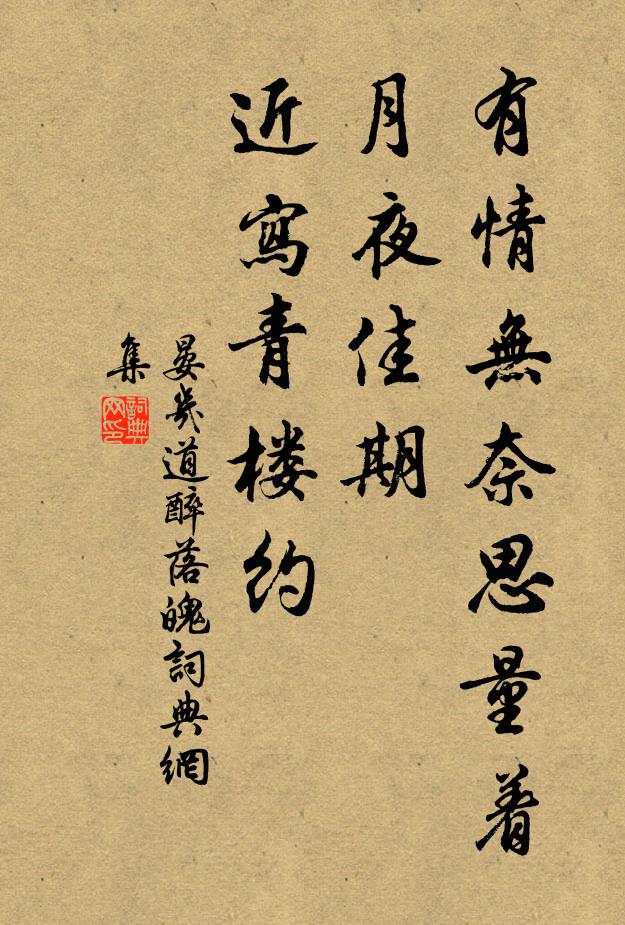 有情無奈思量着
月夜佳期
近寫青楼约
晏幾道醉落魄詞典網
集
詞典
网印